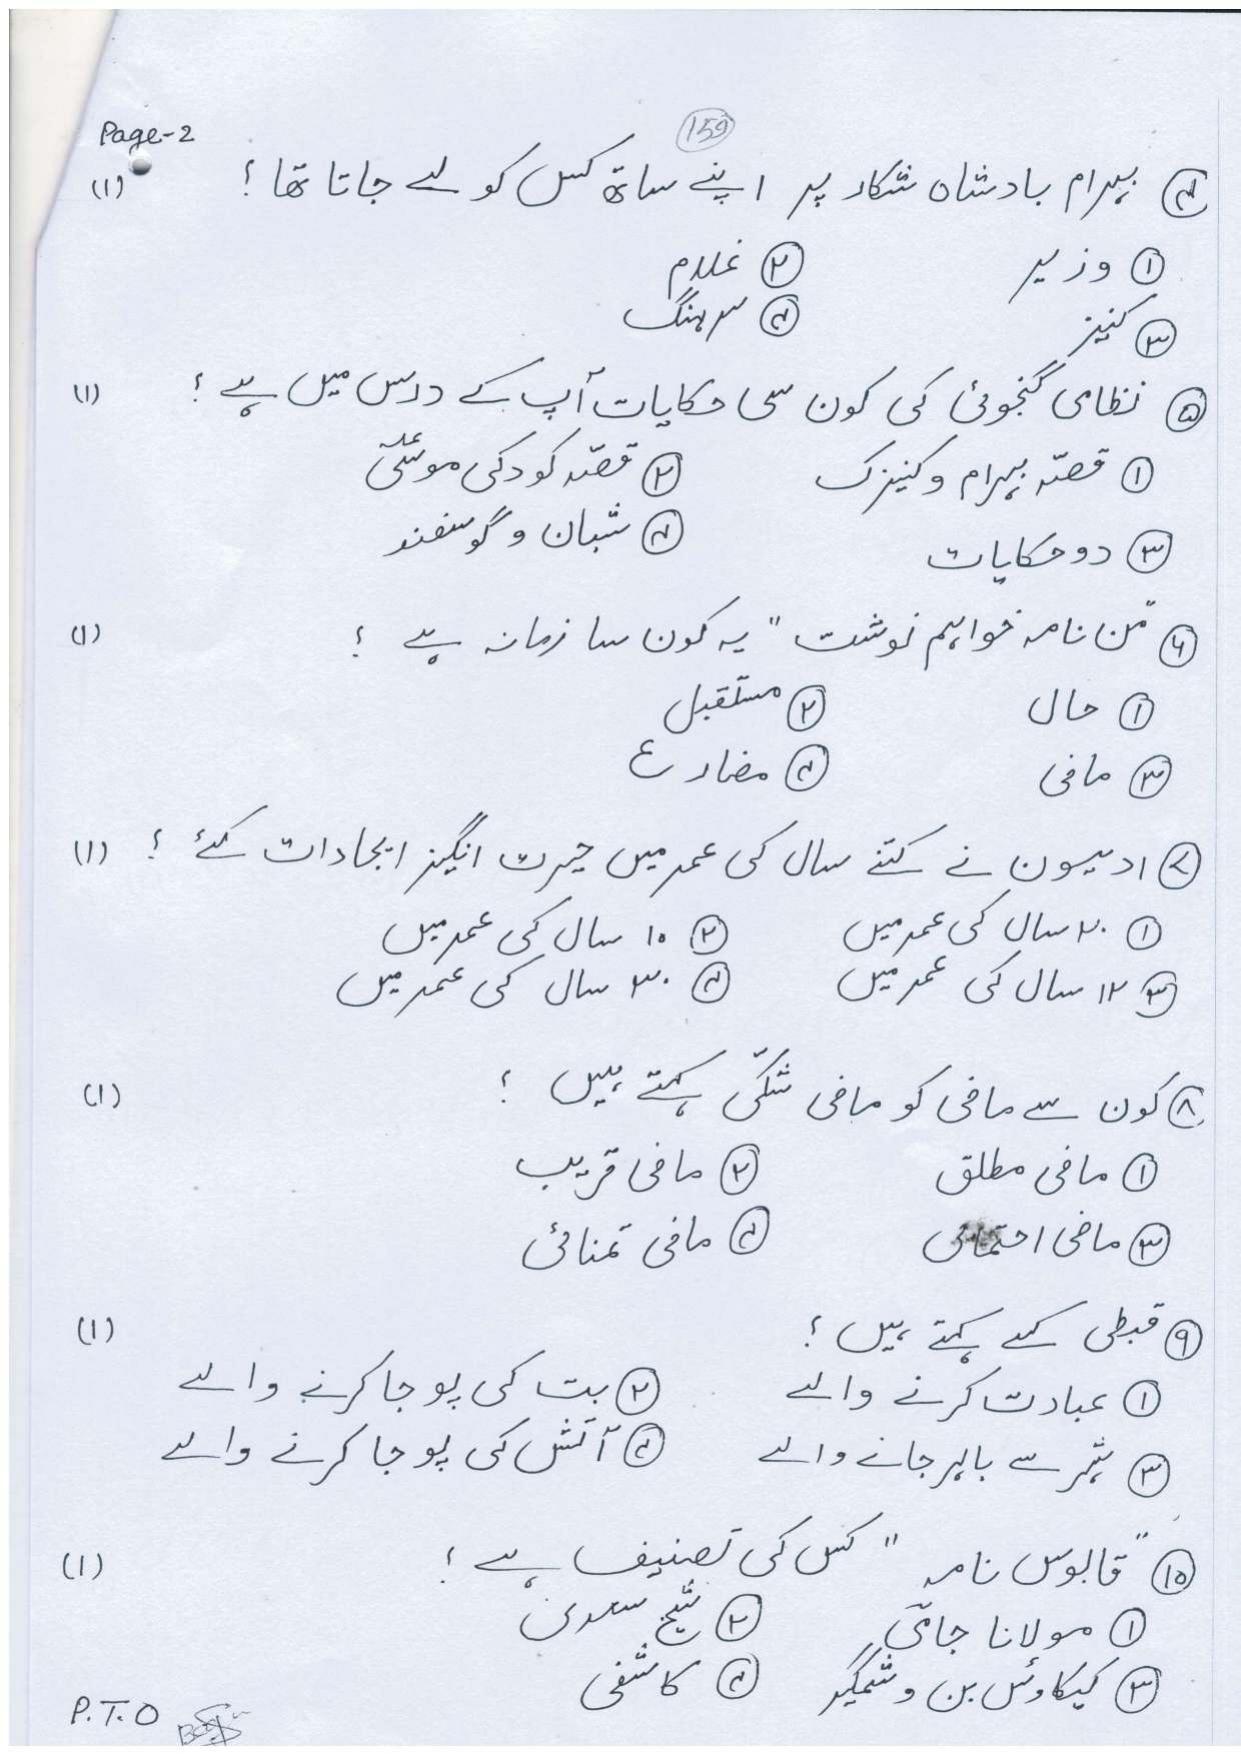 Page-2
159
۴ بہرام بادشاہ شکار پر اپنے ساتھ کس کو لے جاتا تھا ؟ (1)
۱ وزیر ۲ غلام
۳ کنیز ۴ سرہنگ
۵ نظامی گنجوئی کی کون سی حکایات آپ کے درس میں ہے ؟ (1)
۱ قصّہ بہرام و کنیزک ۲ قصّہ کودکی موسیٰؑ
۳ دو حکایات ۴ شبان و گوسفند
۶ "من نامہ خواہم نوشت" یہ کون سا زمانہ ہے ؟ (1)
۱ حال ۲ مستقبل
۳ ماضی ۴ مضارع
۷ ادیسون نے کتنے سال کی عمر میں حیرت انگیز ایجادات کئے ؟ (1)
۱ ۲۰ سال کی عمر میں ۲ ۱۰ سال کی عمر میں
۳ ۱۲ سال کی عمر میں ۴ ۳۰ سال کی عمر میں
۸ کون سے ماضی کو ماضی شکّی کہتے ہیں ؟ (1)
۱ ماضی مطلق ۲ ماضی قریب
۳ ماضی احتمالی ۴ ماضی تمنائی
۹ قبطی کسے کہتے ہیں ؟ (1)
۱ عبادت کرنے والے ۲ بت کی پوجا کرنے والے
۳ شہر سے باہر جانے والے ۴ آتش کی پوجا کرنے والے
۱۰ "قابوس نامہ" کس کی تصنیف ہے ؟ (1)
۱ مولانا جامیؒ ۲ شیخ سعدیؒ
۳ کیکاوئس بن وشمگیر ۴ کاشفی
P.T.O